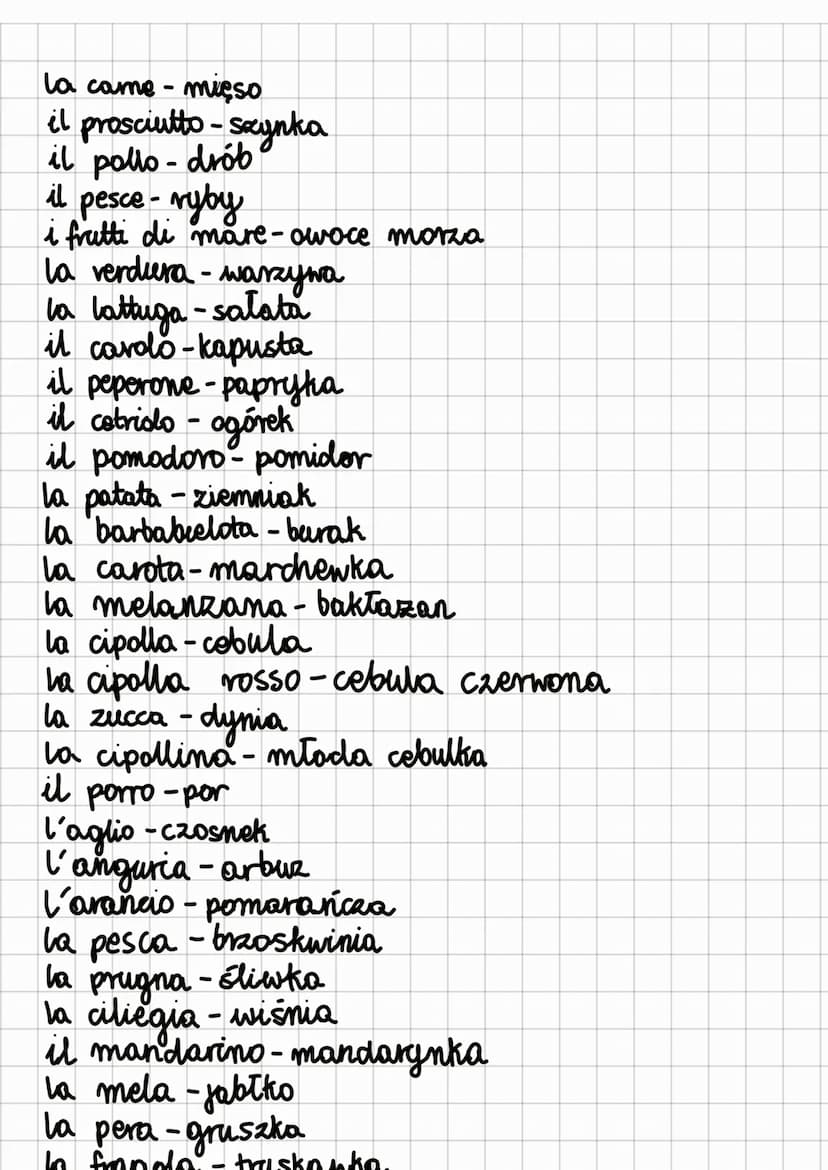 la carne - mięso
il prosciutto - szynka
il pollo - drób
il pesce - ryby
i frutti di mare - owoce morza
la verdura - warzywa
la lattuga - sałata
il cavolo - kapusta
il peperone - papryka
il cetriolo - ogórek
il pomodoro - pomidor
la patata - ziemniak
la barbabietola - burak
la carota - marchewka
la melanzana - bakłażan
la cipolla - cebula
la cipolla rosso - cebula czerwona
la zucca - dynia
la cipollina - młoda cebulka
il porro - por
l'aglio - czosnek
l'anguria - arbuz
l'arancio - pomarańcza
la pesca - brzoskwinia
la prugna - śliwka
la ciliegia - wiśnia
il mandarino - mandarynka
la mela - jabłko
la pera - gruszka
la fragola - truskawka